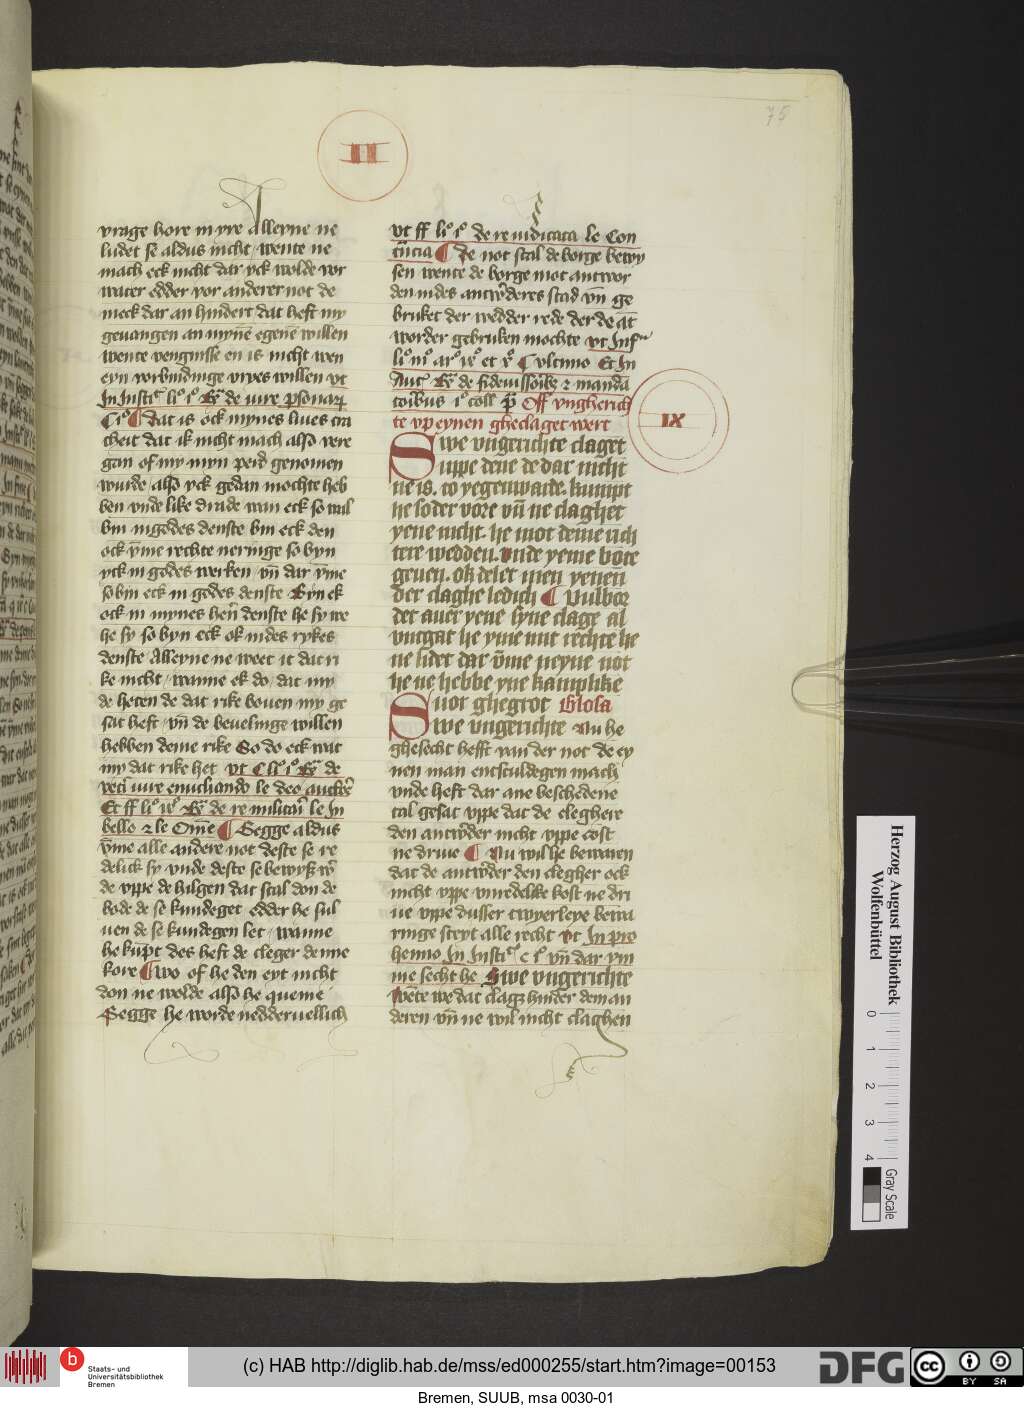 75
II
vrage hore myre Alleyne ne
ludet se aldus nicht wente ne
mach eck nicht dar yck wolde vor
water edder vor anderer not de
meck dar an hindert dat heft my
geuangen an mynē egenē willen
wente vengnisse en is nicht wen
eyn vorbindinge vryes willen vt
In Insti
dat is ock mynes liues cra
cheit dat ik nicht mach also vere
gan of my myn perd genomen
wurde also yck gedan mochte heb
ben vnde like drade wan eck so wil
bin in godes denste bin eck den
ock yme rechte neringe so byn
yck in godes werken vn̄ dar yme
so bin eck in godes denste Byn ek
ock in mynes herī denste he sy we
he sy so byn eck ok in des rykes
denste Alleyne ne weet it dat ri
ke nicht wanne ek do dat my
de heten de dat rike bouen my ge
sat heft vn̄ de beuelinge willen
hebben deme rike So do eck wat
my dat rike het vt
Segge aldus
yme alle andere not deste se re
delick sy vnde deste se bewyst
de vppe de hilgen dat scal don de
bode de se kundeget edder he sul
uen de se kundegen let wanne
he kūpt des heft de cleger deme
kore wo of he den eyt nicht
don ne wolde also he queme
Segge he worde nedderuellich
vt ff li° i° de rei vidicata le Con
tīncia De not scal de borge bewy
sen wente de borge mot antwor
den in des antw̄deres stad vn̄ ge
bruket der wedder rede der de āt
worder gebruken mochte vt Inf
vltimo Et In
de fideiussoribz z manda
Off vngherich
te vp eynen gheclaget wert
IX
Swe vngerichte claget
uppe dene de dar nicht
ne is. to yegenwarde. kumpt
he soder vore vn̄ ne claghet
yene nicht. he mot deme rich
tere wedden. vnde yeme bote
geuen. ok delet men yenen
der claghe ledich Vulbor
det auer yene syne clage al
vntgat he yme mit rechte he
ne lidet dar vme neyne not
he ne hebbe yne kamplike
Suot ghegrot Glosa
Swe vngerichte Nu he
ghesecht hefft van der not de ey
nen man entsculdegen mach
vnde heft dar ane beschedene
tal gesat vppe dat de cleghere
den antw̄der nicht vppe cost
ne driue Nu wil he bewaren
dat de antw̄der den clegher ock
nicht vppe vnredelike kost ne dri
ue vppe dusser twyerleye bewa
ringe steyt alle recht vt In pro
hemio In Insti vn̄ dar vm
me secht he Swe vngerichte
wēte we dat clagz hinder dem an
deren vn̄ ne wil nicht claghen
Herzog August Bibliothek
Wolfenbüttel
0 1 2 3 4
Gray Scale
b Staats- und
Universitätsbibliothek
Bremen
(c) HAB http://diglib.hab.de/mss/ed000255/start.htm?image=00153
DFG
cc BY SA
Bremen, SUUB, msa 0030-01